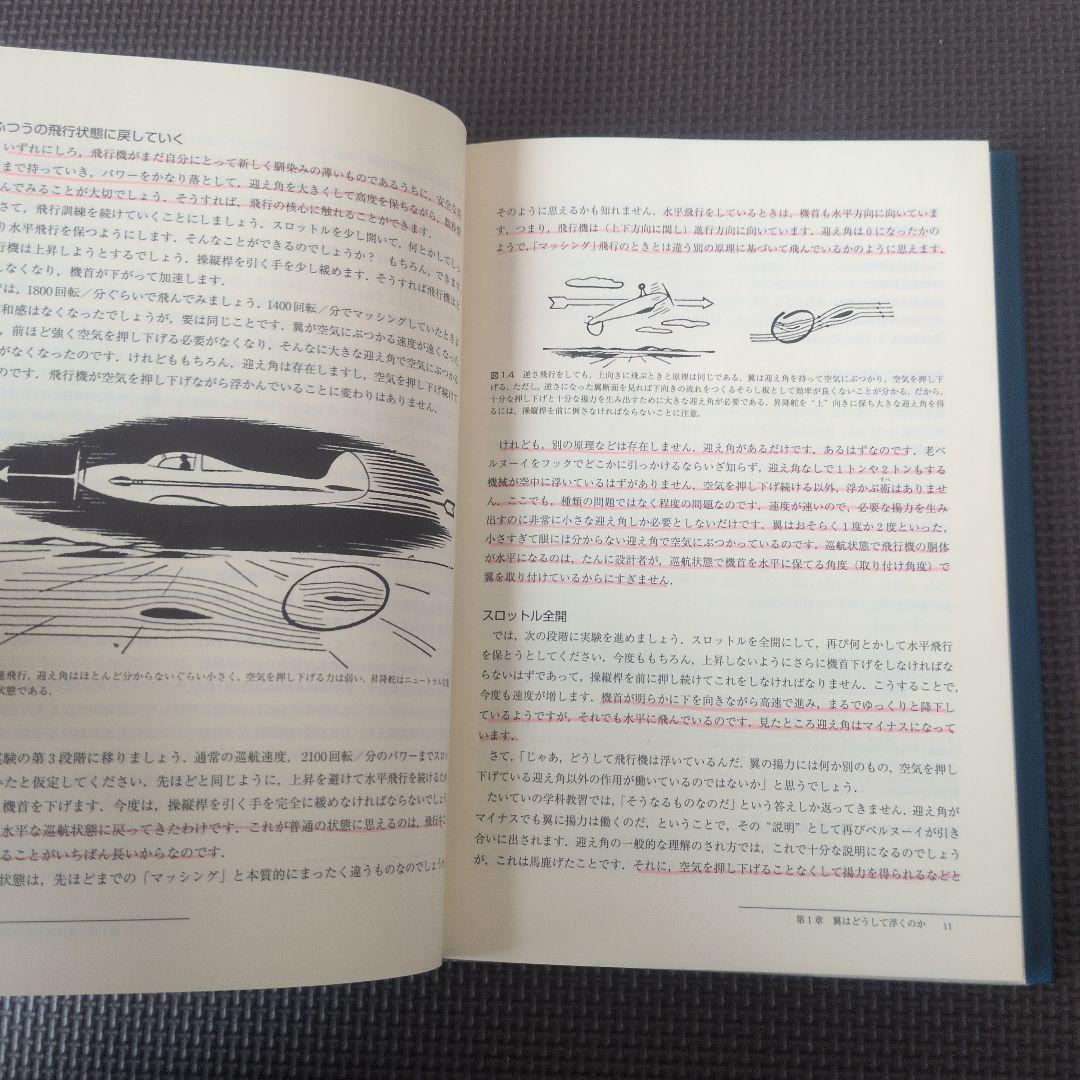 ぶつうの飛行状態に戻していく
いずれにしろ，飛行機がまだ自分にとって新しく馴染みの薄いものであるうちに，安全な高
まで持っていき，パワーをかなり落として，迎え角を大きくして高度を保ちながら，数秒間
んでみることが大切でしょう．そうすれば，飛行の核心に触れることができます．
さて，飛行訓練を続けていくことにしましょう．スロットルを少し開いて，何とかしてしっ
り水平飛行を保つようにします．そんなことができるのでしょうか？　もちろん，できます
行機は上昇しようとするでしょう．操縦桿を引く手を少し緩めます．そうすれば飛行機は上
しなくなり，機首が下がって加速します．
は，1800回転／分ぐらいで飛んでみましょう．1400回転／分でマッシングしていたときよ
和感はなくなったでしょうが，要は同じことです．翼が空気にぶつかる速度が速くなった
，前ほど強く空気を押し下げる必要がなくなり，そんなに大きな迎え角で空気にぶつかる
がなくなったのです．けれどももちろん，迎え角は存在しますし，空気を押し下げ続けて
のです．飛行機が空気を押し下げながら浮かんでいることに変わりはありません．
速飛行．迎え角はほとんど分からないぐらい小さく，空気を押し下げる力は弱い．昇降舵はニュートラル位置
状態である．
実験の第3段階に移りましょう．通常の巡航速度，2100回転／分のパワーまでスロ
いたと仮定してください．先ほどと同じように，上昇を避けて水平飛行を続けるため
機首を下げます．今度は，操縦桿を引く手を完全に緩めなければならないでしょう
水平な巡航状態に戻ってきたわけです．これが普通の状態に思えるのは，飛行中に
ることがいちばん長いからなのです．
状態は，先ほどまでの「マッシング」と本質的にまったく違うものなのでしょうか
そのように思えるかも知れません．水平飛行をしているときは，機首も水平方向に向いていま
す．つまり，飛行機は（上下方向に関し）進行方向に向いています．迎え角は0になったかの
ようで，「マッシング」飛行のときとは違う別の原理に基づいて飛んでいるかのように思えます．
図1.4　逆さ飛行をしても，上向きに飛ぶときと原理は同じである．翼は迎え角を持って空気にぶつかり，空気を押し下
げる．ただし，逆さになった翼断面を見れば下向きの流れをつくるそらし板として効率が良くないことが分かる．だから，
十分な押し下げと十分な揚力を生み出すために大きな迎え角が必要である．昇降舵を“上”向きに保ち大きな迎え角を得
るには，操縦桿を前に倒さなければならないことに注意．
けれども，別の原理などは存在しません．迎え角があるだけです．あるはずなのです．老ベ
ルヌーイをフックでどこかに引っかけるならいざ知らず，迎え角なしで1トンや2トンもする
機械が空中に浮いているはずがありません．空気を押し下げ続ける以外，浮かぶ術はありませ
ん．ここでも，種類の問題ではなく程度の問題なのです．速度が速いので，必要な揚力を生み
出すのに非常に小さな迎え角しか必要としないだけです．翼はおそらく1度か2度といった，
小さすぎて眼には分からない迎え角で空気にぶつかっているのです．巡航状態で飛行機の胴体
が水平になるのは，たんに設計者が，巡航状態で機首を水平に保てる角度（取り付け角度）で
翼を取り付けているからにすぎません．
スロットル全開
では，次の段階に実験を進めましょう．スロットルを全開にして，再び何とかして水平飛行
を保とうとしてください．今度ももちろん，上昇しないようにさらに機首下げをしなければな
らないはずであって，操縦桿を前に押し続けてこれをしなければなりません．こうすることで，
今度も速度が増します．機首が明らかに下を向きながら高速で進み，まるでゆっくりと降下し
ているようですが，それでも水平に飛んでいるのです．見たところ迎え角はマイナスになって
います．
さて，「じゃあ，どうして飛行機は浮いているんだ．翼の揚力には何か別のもの，空気を押し
下げている迎え角以外の作用が働いているのではないか」と思うでしょう．
たいていの学科教習では，「そうなるものなのだ」という答えしか返ってきません．迎え角が
マイナスでも翼に揚力は働くのだ，ということで，その“説明”として再びベルヌーイが引き
合いに出されます．迎え角の一般的な理解のされ方では，これで十分な説明になるのでしょう
が，これは馬鹿げたことです．それに，空気を押し下げることなくして揚力を得られるなどと
第1章　翼はどうして浮くのか　11